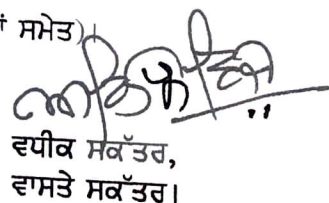 ਸਮੇਤ)
ਵਧੀਕ ਸਕੱਤਰ,
ਵਾਸਤੇ ਸਕੱਤਰ।